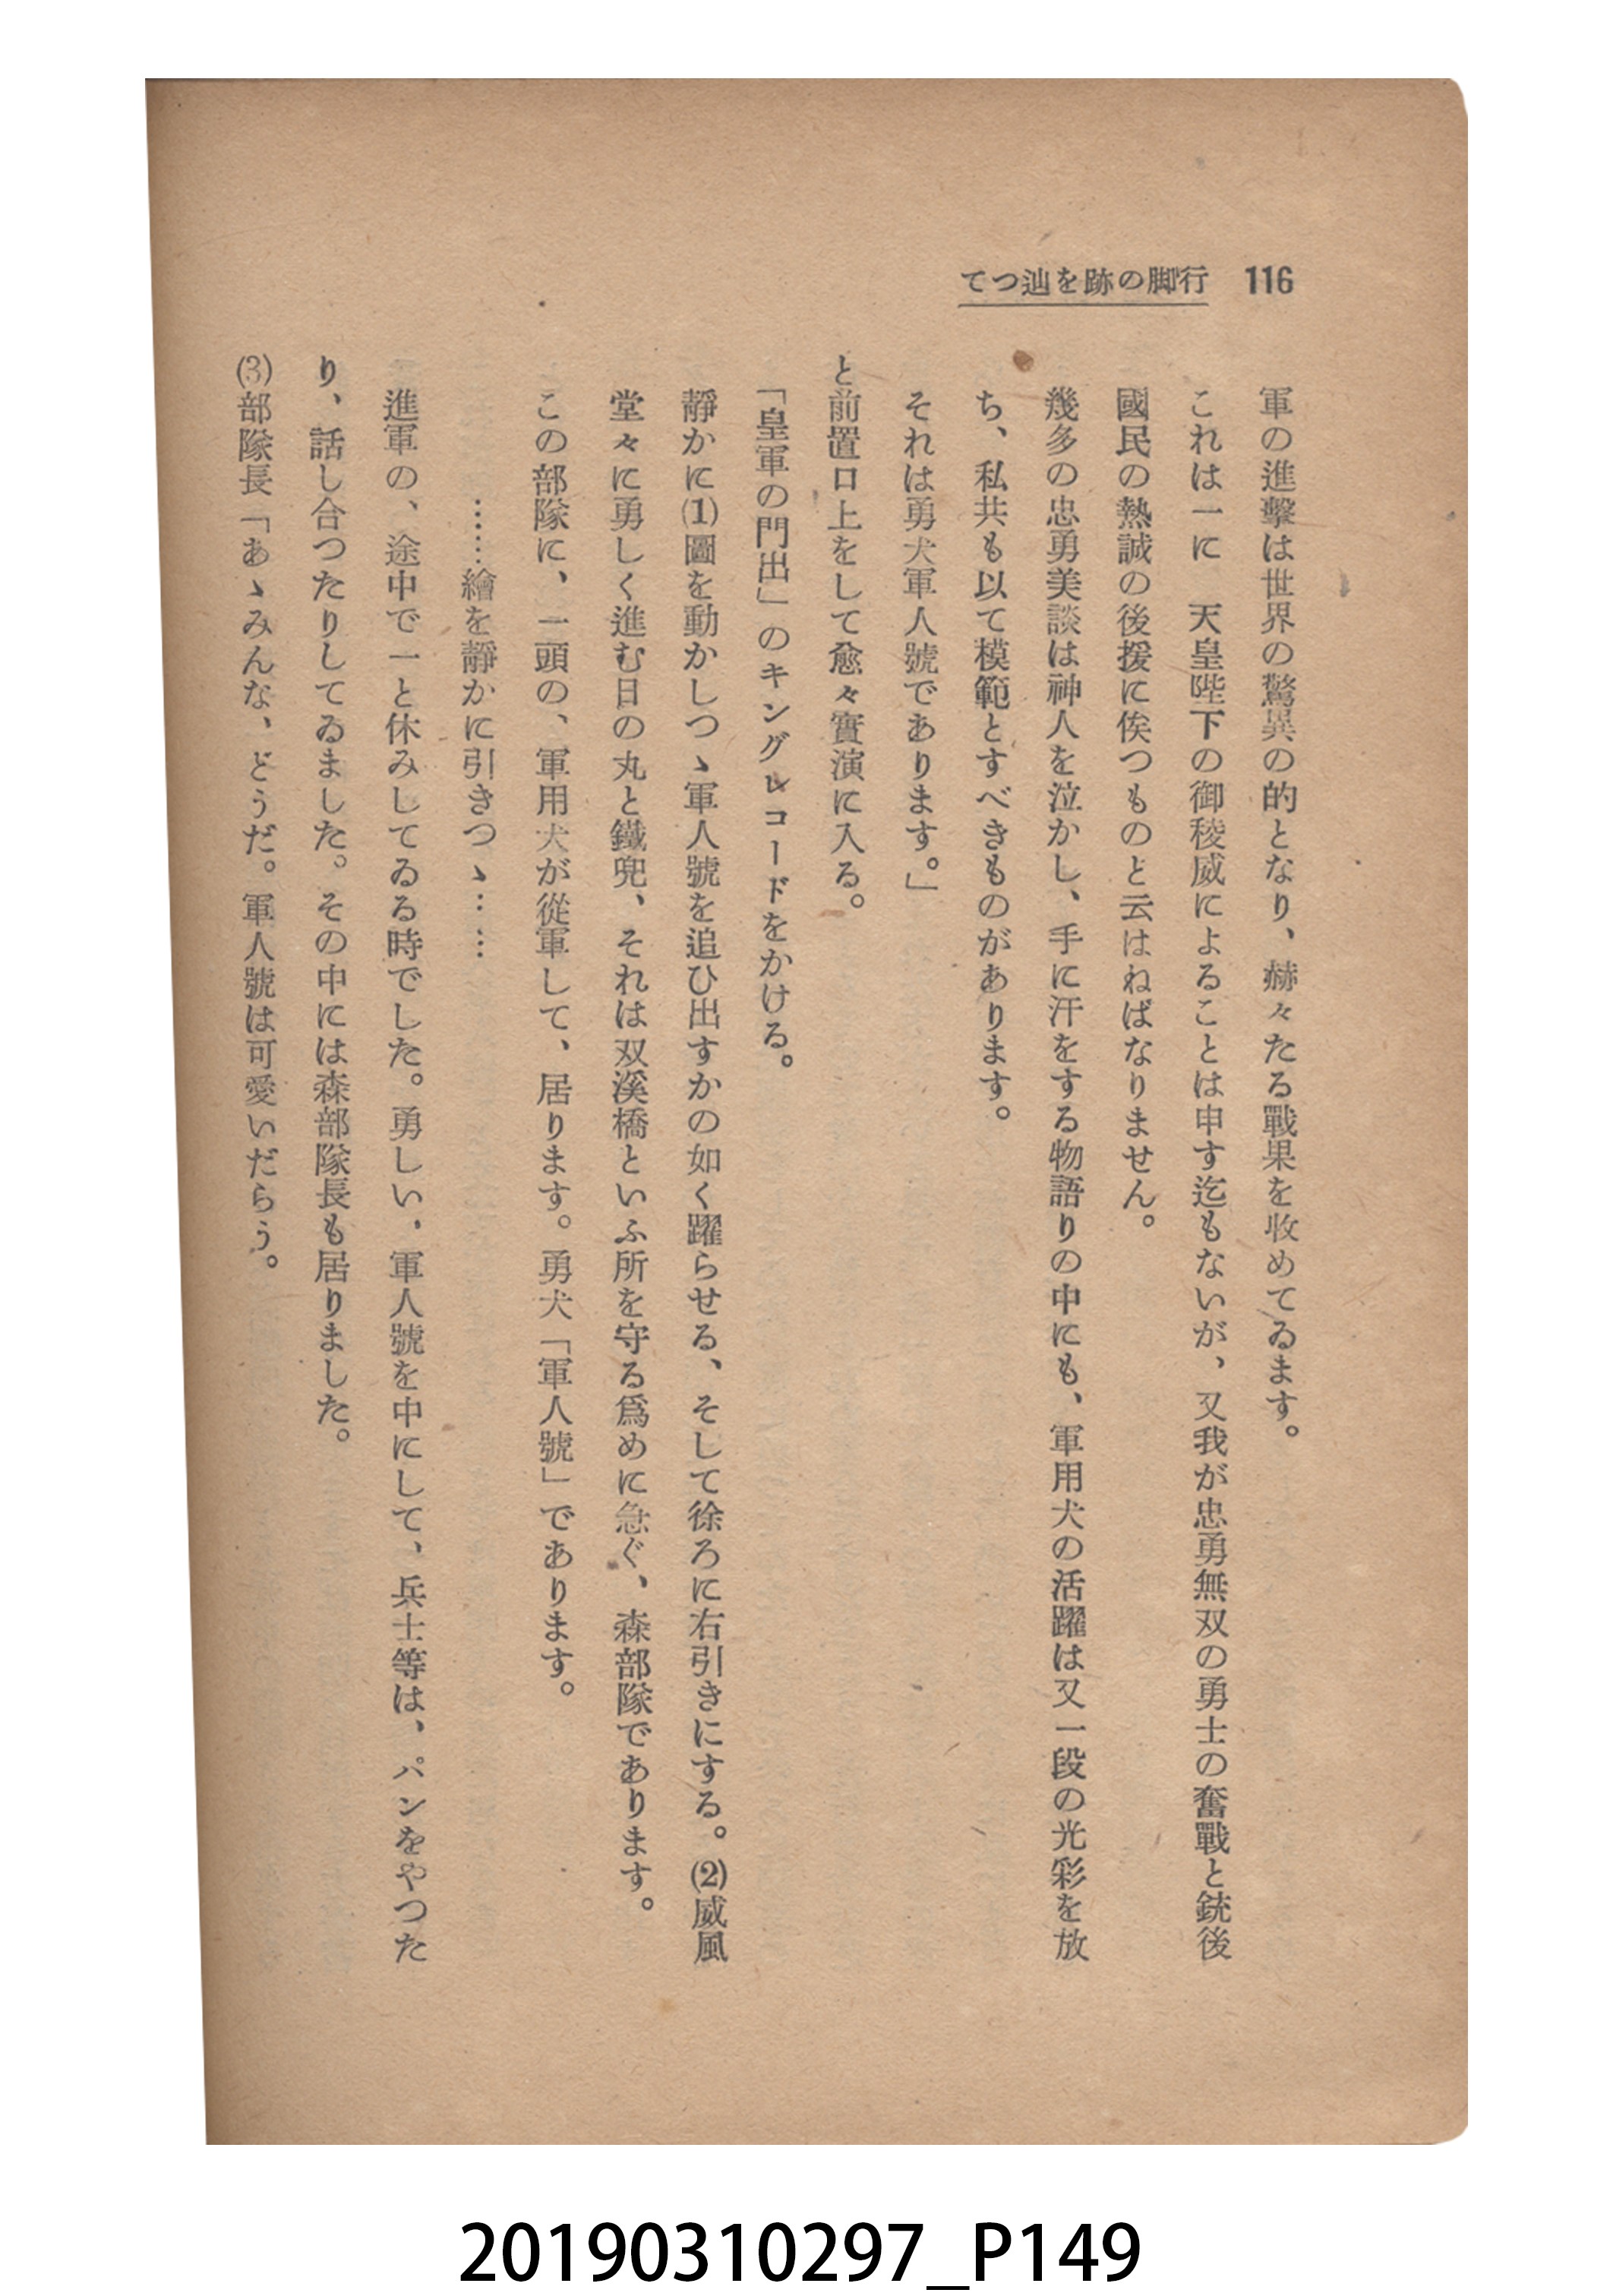 116
てつ辿を跡の脚行
軍の進擊は世界の驚異の的となり、赫々たる戰果を收めてゐます。
これは一に　天皇陛下の御稜威によることは申す迄もないが、又我が忠勇無双の勇士の奮戰と銃後
國民の熱誠の後援に俟つものと云はねばなりません。
幾多の忠勇美談は神人を泣かし、手に汗をする物語りの中にも、軍用犬の活躍は又一段の光彩を放
ち、私共も以て模範とすべきものがあります。
それは勇犬軍人號であります。」
と前置口上をして愈々實演に入る。
「皇軍の門出」のキングレコードをかける。
靜かに(1)圖を動かしつゝ軍人號を追ひ出すかの如く躍らせる、そして徐ろに右引きにする。(2)威風
堂々に勇しく進む日の丸と鐵兜、それは双溪橋といふ所を守る爲めに急ぐ、森部隊であります。
この部隊に、一頭の、軍用犬が從軍して、居ります。勇犬「軍人號」であります。
……繪を靜かに引きつゝ……
進軍の、途中で一と休みしてゐる時でした。勇しい、軍人號を中にして、兵士等は、パンをやつた
り、話し合つたりしてゐました。その中には森部隊長も居りました。
(3)部隊長「あゝみんな、どうだ。軍人號は可愛いだらう。
20190310297_P149